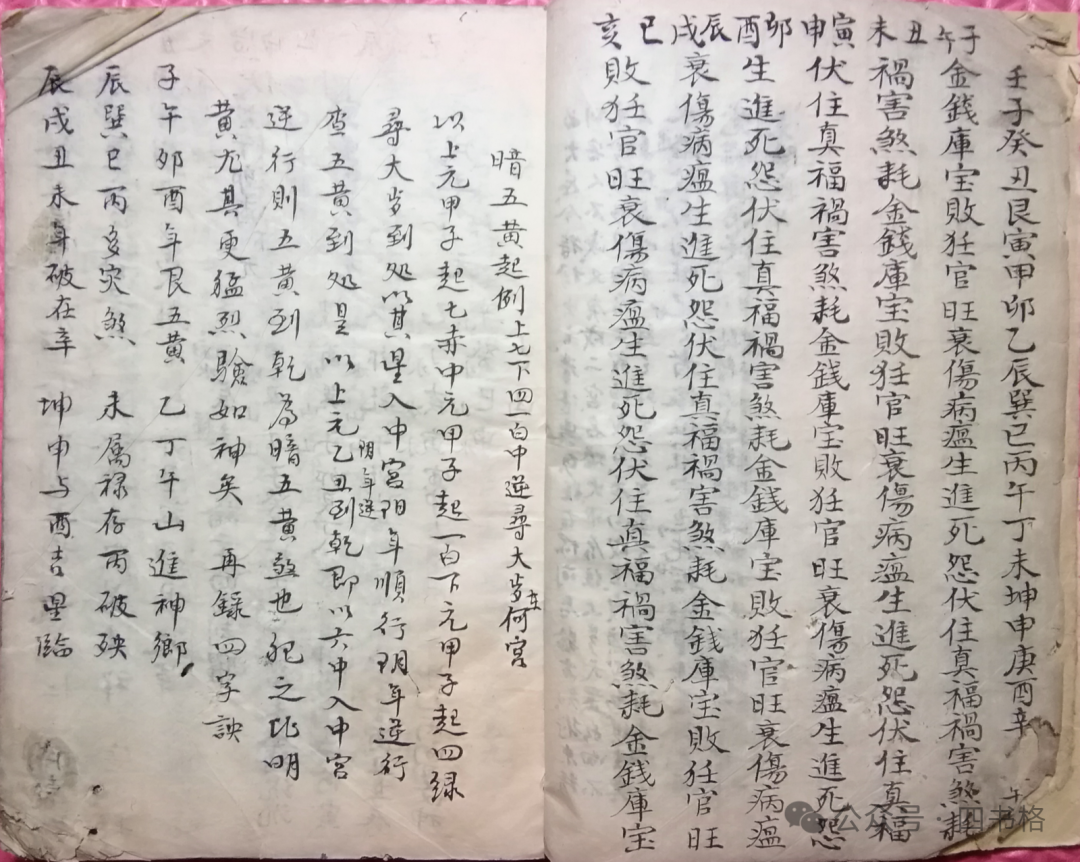 壬子癸丑艮寅甲卯乙辰巽巳丙午丁未坤申庚酉辛
子午金錢庫宝敗狂官旺衰傷病瘟生進死怨伏住真福禍害煞耗
丑未禍害煞耗金錢庫宝敗狂官旺衰傷病瘟生進死怨伏住真福
寅申伏住真福禍害煞耗金錢庫宝敗狂官旺衰傷病瘟生進死怨
卯酉生進死怨伏住真福禍害煞耗金錢庫宝敗狂官旺衰傷病瘟
辰戌衰傷病瘟生進死怨伏住真福禍害煞耗金錢庫宝敗狂官旺
巳亥敗狂官旺衰傷病瘟生進死怨伏住真福禍害煞耗金錢庫宝
暗五黄起例上七下四一白中逆尋大岁在何宮
以上元甲子起七赤中元甲子起一白下元甲子起四绿
尋大岁到处以其星入中宮阳年順行阴年逆行
查五黄到处是以上元乙丑到乾即以六中入中宮
阴年逆
逆行則五黄到乾為暗五黄煞也犯之比明
黄尤其更猛烈驗如神矣 再錄四字訣
子午卯酉年艮五黄 乙丁午山進神鄉
辰巽巳丙多灾煞 未属禄存丙破殃
辰戌丑未年破在辛 坤申与酉吉星臨
公众号·四书格